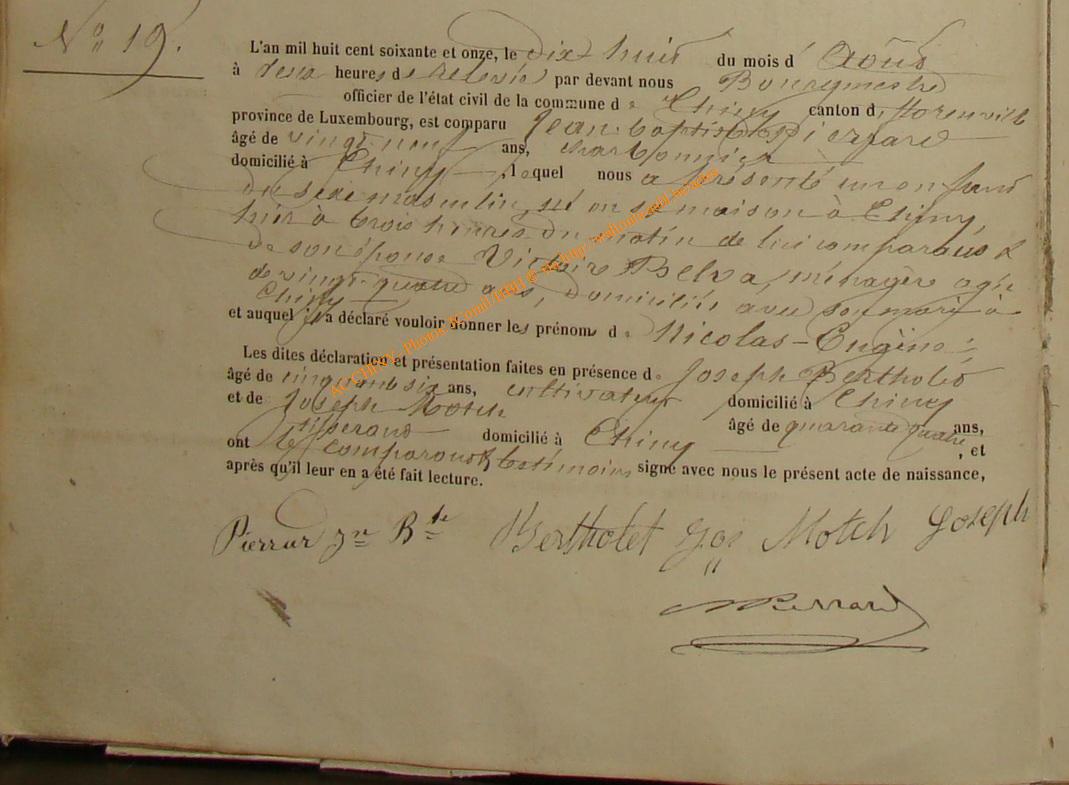 No 19.
L'an mil huit cent soixante et onze, le dix-huit du mois d'Août
à deux heures de relevée par devant nous Bourgmestre
officier de l'état civil de la commune de Chiny canton de Florenville
province de Luxembourg, est comparu Jean-Baptiste Pierrard
âgé de vingt-neuf ans, charbonnier
domicilié à Chiny, lequel nous a présenté un enfant
du sexe masculin, né en sa maison à Chiny
hier à trois heures du matin de lui comparaiss t
de son épouse Victoire Belva, ménagère agée
de vingt-quatre ans, domiciliée avec son mari à
Chiny
et auquel il a déclaré vouloir donner les prénoms de Nicolas-Eugène
Les dites déclaration et présentation faites en présence de Joseph Bertholet
âgé de cinquante six ans, cultivateur domicilié à Chiny
et de Joseph Motch âgé de quarante quatre ans,
tisserand domicilié à Chiny, et
ont le comparant & les témoins signé avec nous le présent acte de naissance,
après qu'il leur en a été fait lecture.
Pierrard Jn Bte Bertholet Jos Motch Joseph